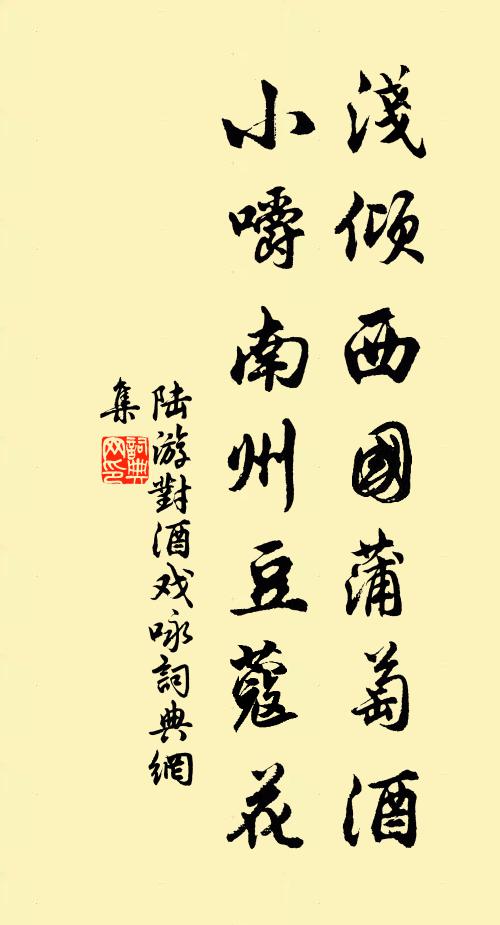 淺傾西國蒲萄酒
小嚼南州豆蔻花
陆游對酒戏咏詞典網
集
詞典网印